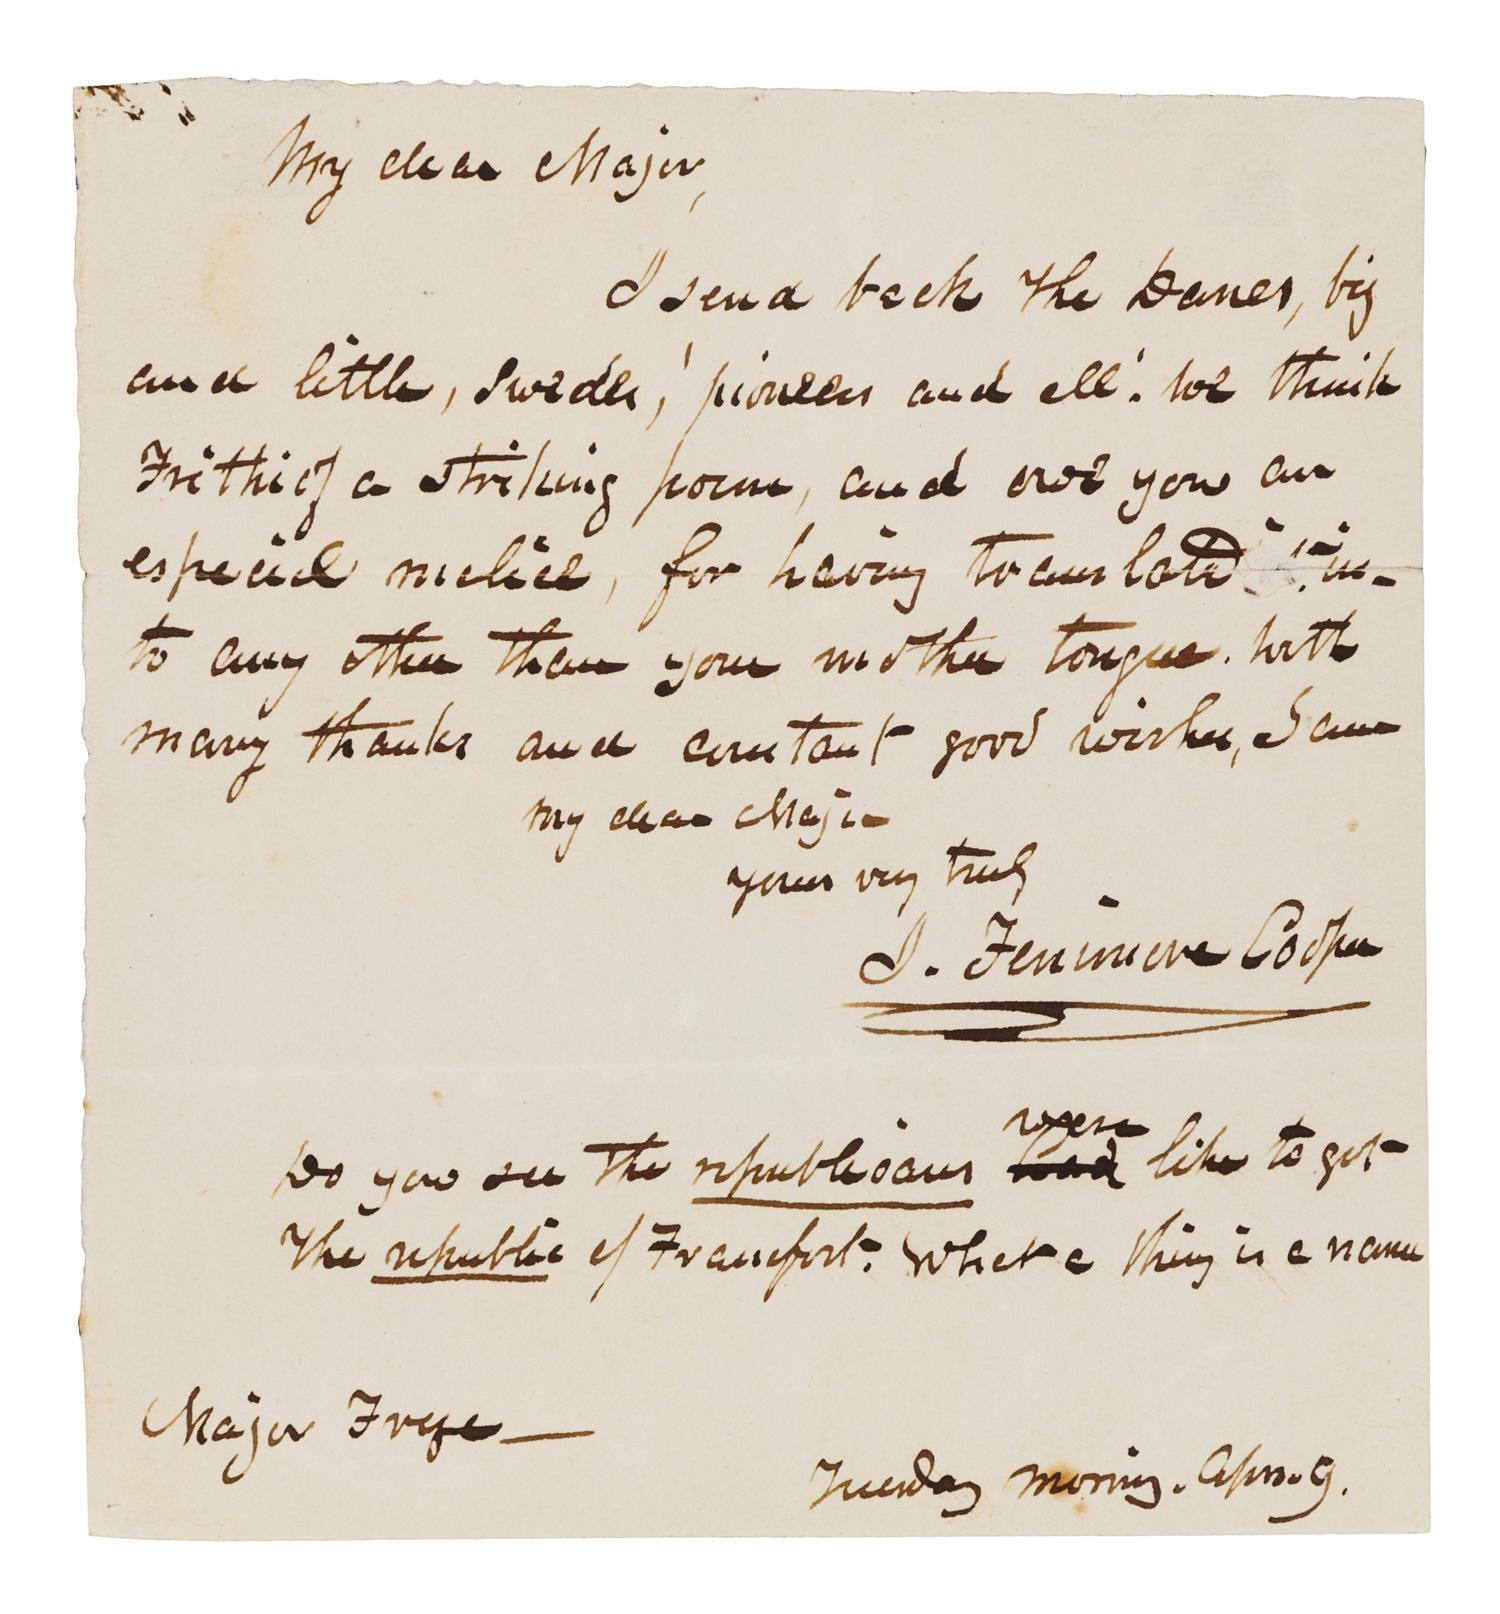 My dear Major,
I send back the Danes, big
and little, Swedes, 'pioneers and all'. We think
Frithiof a striking poem, and owe you an
especial malice, for having translated it in-
to any other than your mother tongue. With
many thanks and constant good wishes, I am
my dear Major
yours very truly
J. Fenimore Cooper
were
Do you see the republicans had like to get
the republic of Francfort. What a thing is a name
Major Frye —
Tuesday morning. Apr. 9.